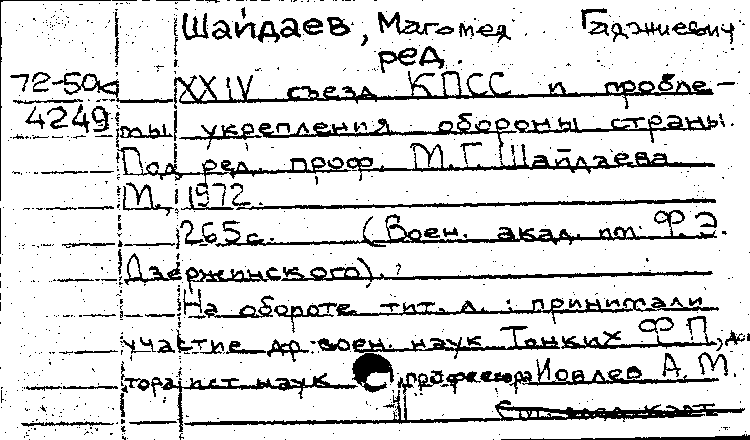 Шайдаев, Магомед Гаджиевич
ред.
72-50к XXIV съезд КПСС и пробле-
4249 мы укрепления обороны страны.
Под ред. проф. М.Г. Шайдаева
М., 1972.
265с. (Воен. акад. им. Ф.Э.
Дзержинского).
На обороте тит. л.: принимали
участие др. воен. наук Тонких Ф.П., док
тора ист. наук, профессора Иовлев А.М.